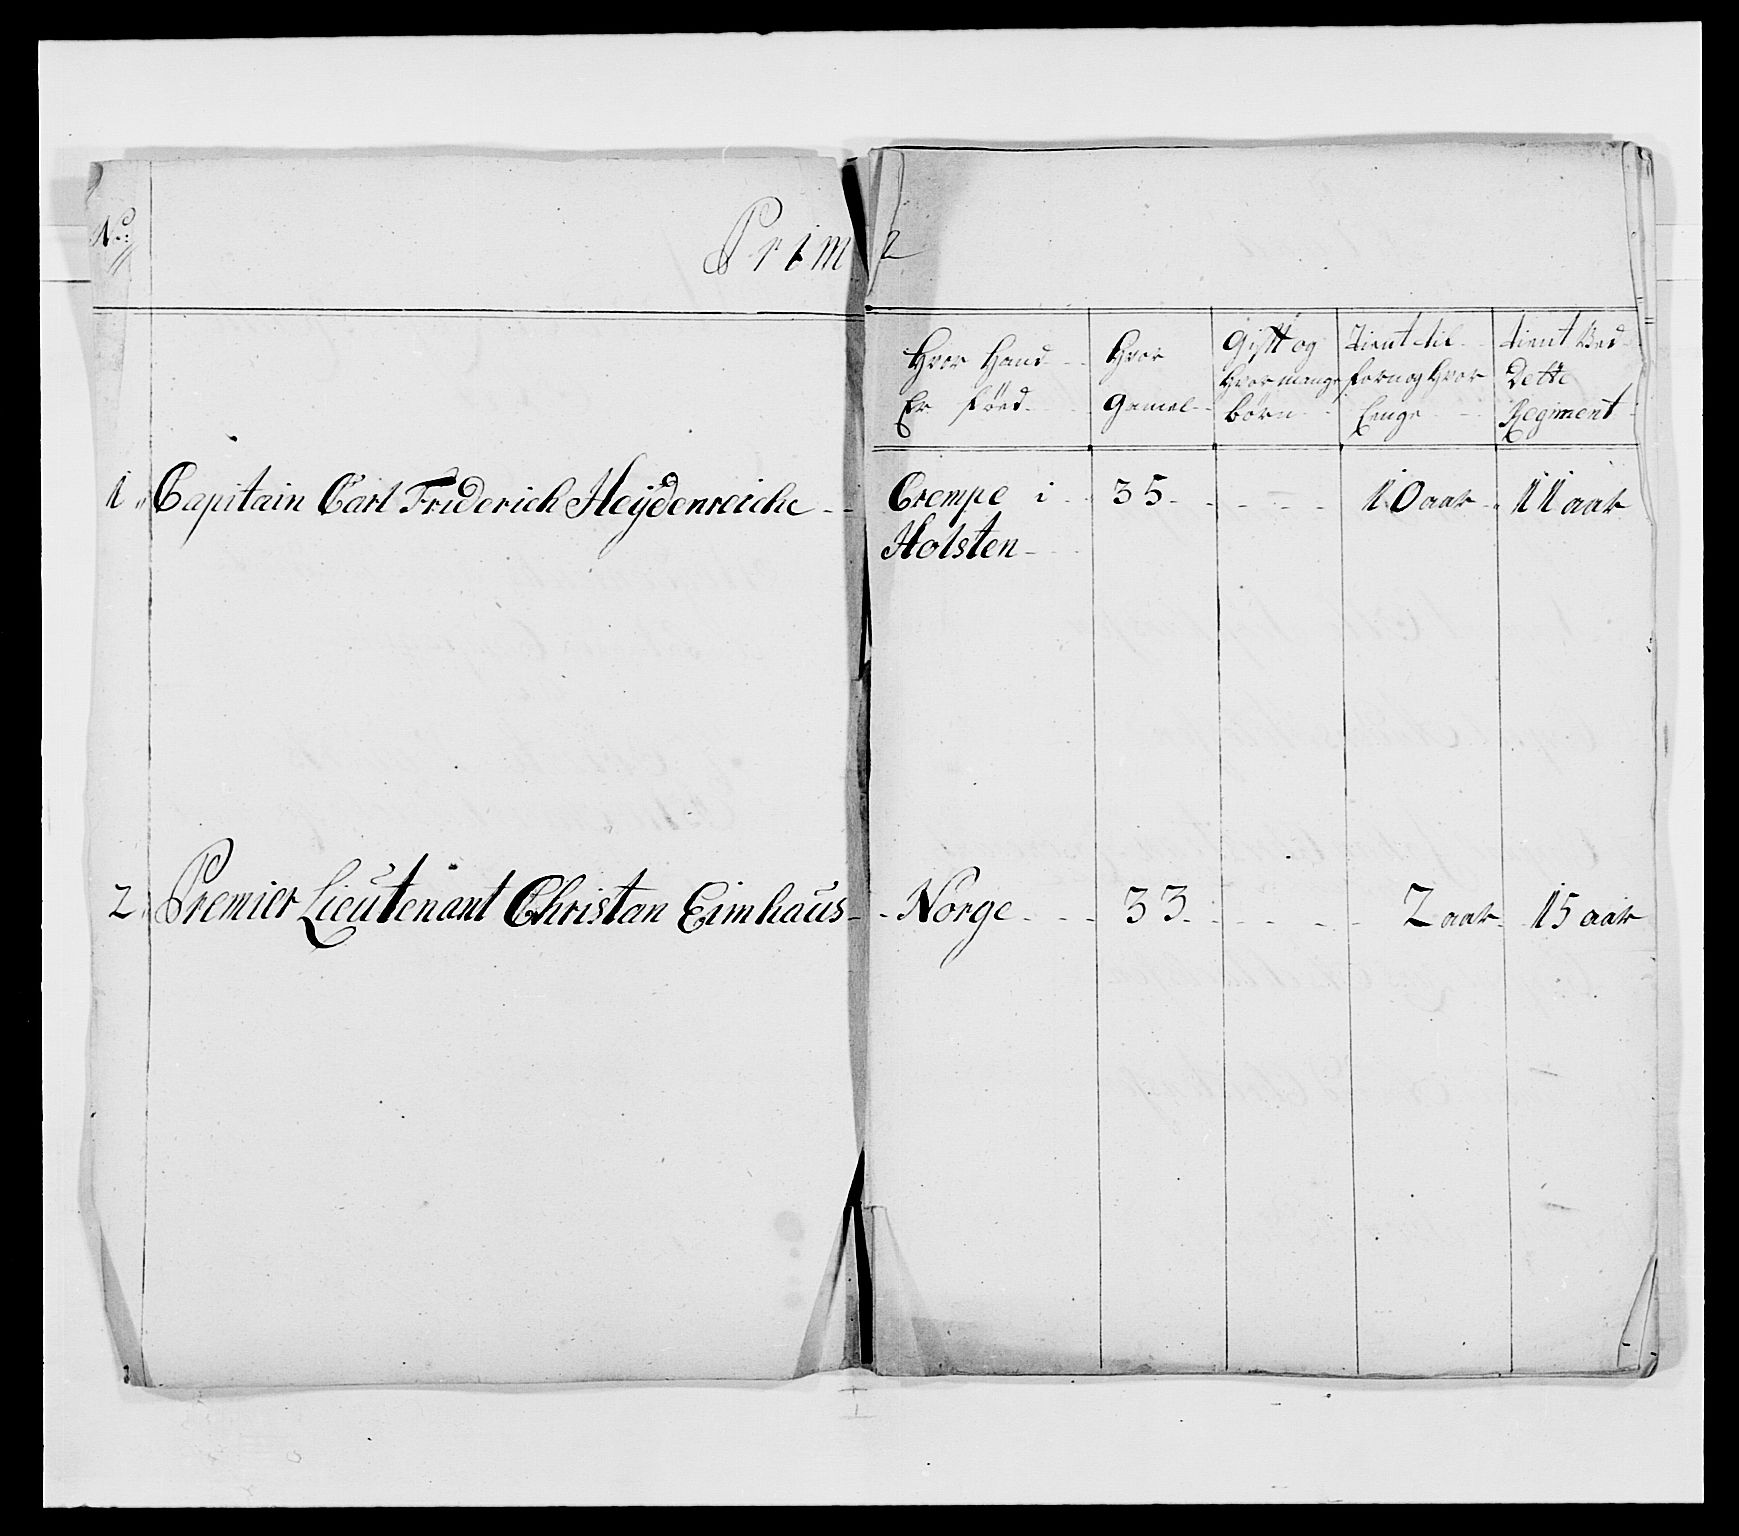 No:
Prima
Hvor Hand
Er føed
Hvor
gamel
Gifft og
Hvor mange
børn
tient til
forn og Hvor
Lenge
tient Ved
Dette
Regiment
1 Capitain Carl Friderich Heydenreiche Crempe i 35 10 aar 11 aar
Holsten
2 Premier Lieutenant Christan Eimhaus Norge 33 2 aar 15 aar